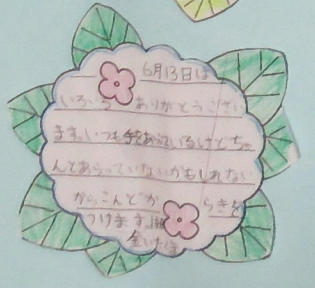 6月13日は
いろいろ ありがとうござい
ます。いつも手をあらっているけどちゃ
んとあらっていないかもしれない
からこんどか らきを
つけます。